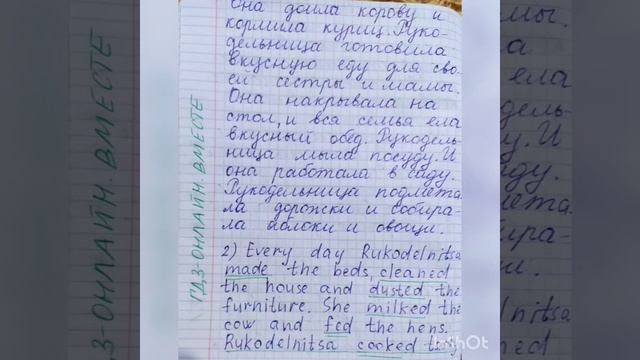 Она доила корову и
кормила куриц. Руко-
дельница готовила
вкусную еду для сво-
ей сестры и мамы.
Она накрывала на
стол, и вся семья ела
вкусный обед. Рукодель-
ница мыла посуду. И
она работала в саду.
Рукодельница подмета-
ла дорожки и собира-
ла яблоки и овощи.
2) Every day Rukodelnitsa
made the beds, cleaned
the house and dusted the
furniture. She milked the
cow and fed the hens.
Rukodelnitsa cooked
ГДЗ-ОНЛАЙН. ВМЕСТЕ